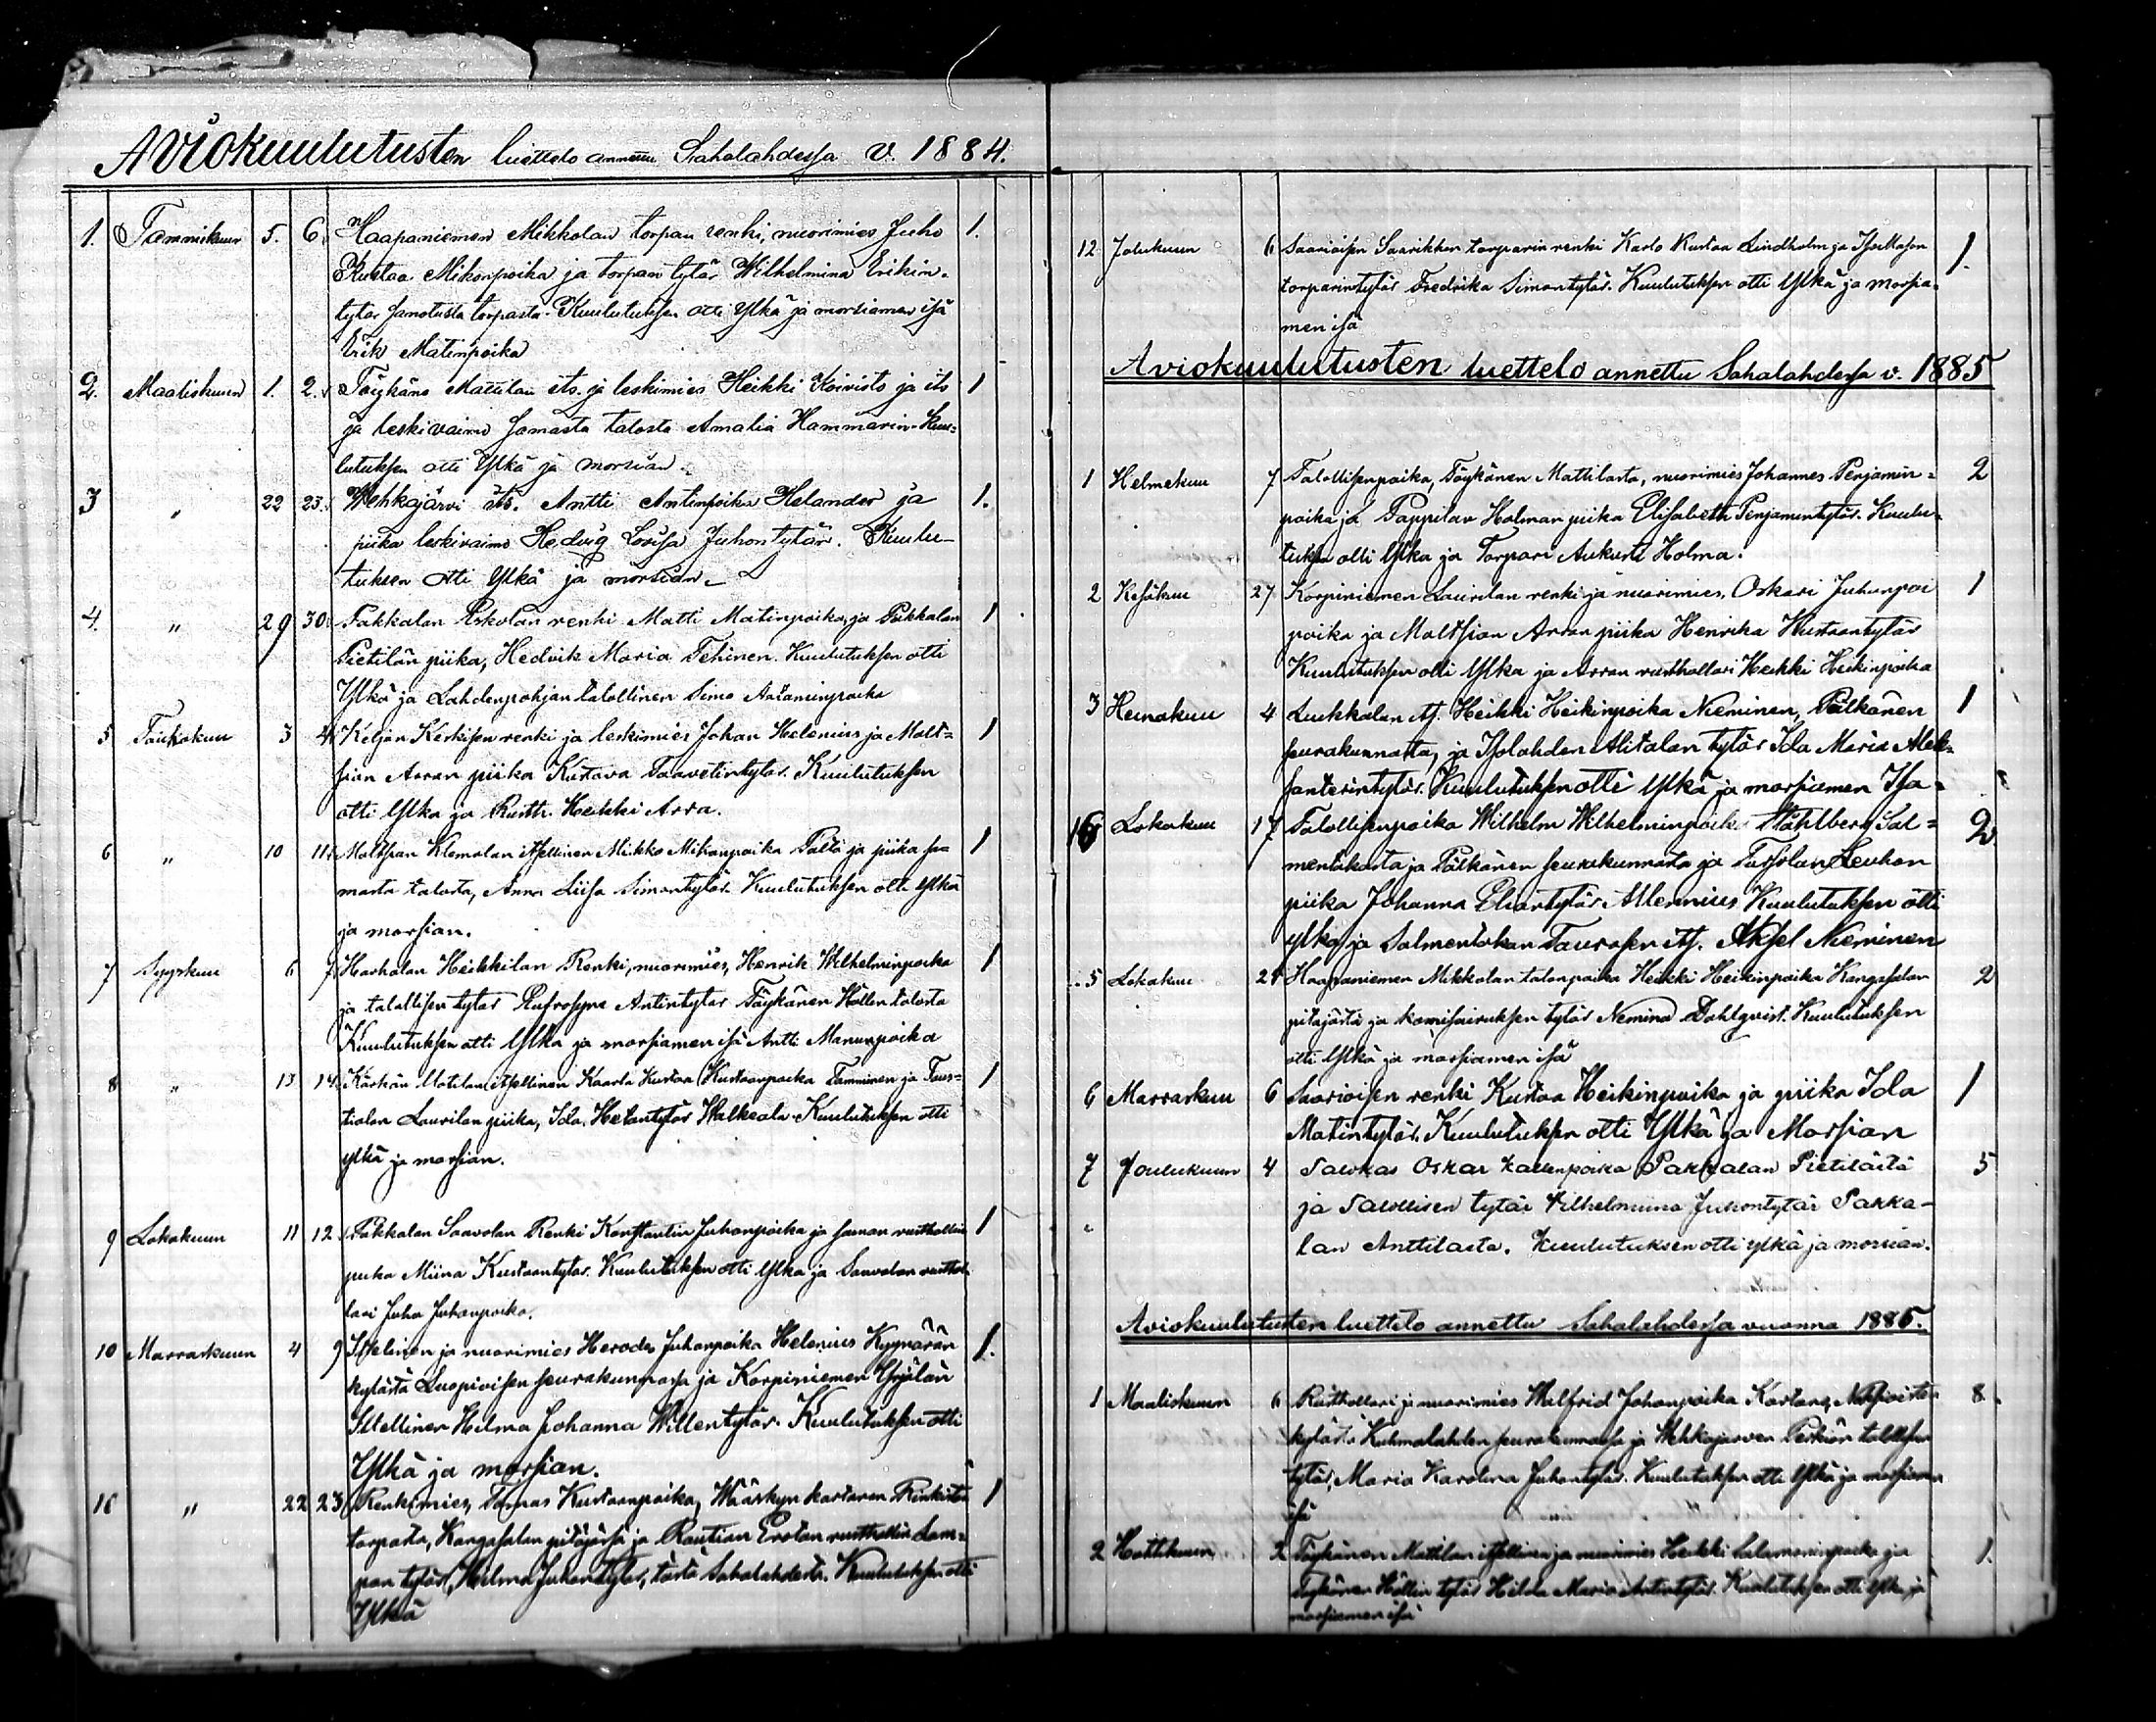 Aviokuulutusten luettelo annettu Sahalahdessa v. 1884.
1. Tammikuun 5. 6. Haapaniemen Mikkolan torpan renki, nuorimies Juho 1.
Kustaa Mikonpoika ja torpan tytär Wilhelmina Erikin-
tytär samotusta torpasta. Kuulutuksen otti Ylkä ja morsiamen isä
Erik Matinpoika
2. Maaliskuun 1. 2. Töykänä Mattilan its. ja leskimies Heikki Koivisto ja its 1
ja leskivaimo samasta talosta Amalia Hammarin. Kuu-
lutuksen otti Ylkä ja morsian.
3 " 22 23. Wehkajärvi its. Antti Antinpoika Helander ja 1.
piika leskivaimo Hedvig Lovisa Juhontytär. Kuulu-
tuksen otti Ylkä ja morsian.
4. " 29 30. Pakkalan Eskolan renki Matti Matinpoika, ja Pakkalan 1
Pietilän piika, Hedvik Maria Tehinen. Kuulutuksen otti
Ylkä ja Lahdenpohjan talollinen Simo Aataminpoika
5 Toukokuun 3 4. Keljän Keskisen renki ja leskimies Johan Helenius ja Malt= 1
sian Arran piika Kustava Taavetintytär. Kuulutuksen
otti Ylkä ja Rusth. Heikki Arra.
6 " 10 11. Maltsian Klemolan itsellinen Mikko Mikonpoika Palta ja piika sa 1
masta talosta, Anna Liisa Simontytär. Kuulutuksen otti Ylkä
ja morsian.
7 Syyskuu 6 7. Harhalan Heikkilän Renki, nuorimies, Henrik Wilhelminpoika 1
ja talollisen tytär Eufrosyne Antintytär Töykänän Hollon talosta
Kuulutuksen otti Ylkä ja morsiamen isä Antti Manunpoika
8 " 13 14. Kärkän Matilan itsellinen Kaarla Kustaa Kustaanpoika Tamminen ja Taus= 1
tialan Laurilan piika, Ida Hetantytär Walkeala. Kuulutuksen otti
ylkä ja morsian.
9 Lokakuun 11 12. Pakkalan Saavolan Renki Konstantin Juhanpoika ja saman rusthollin 1
piika Miina Kustaantytär. Kuulutuksen otti Ylkä ja Saavolan rusthol-
lari Juha Juhanpoika.
10 Marraskuun 4 9 Itselinen ja nuorimies Herodes Juhanpoika Helenius Kyynärän 1.
kylästä Luopioisen seurakunnassa ja Korpiniemen Yrjölän
Itsellinen Helma Johanna Willentytär. Kuulutuksen otti
Ylkä ja morsian.
" 22 23. Renkimies Tomas Kustaanpoika, Wääskyn kartanon
torpasta, Kangasalan pitäjässä ja Rautian Erolan rusthollin Lam= 1
pan tytär, Helma Juhantytär, tästä Sahalahdesta. Kuulutuksen otti
Ylkä
12 Joulukuun 6 Saarioisen Saarikken torparin renki Karlo Kustaa Lindholm ja 1.
torparintytär Fredrika Simontytär. Kuulutuksen otti Ylkä ja morsia-
men isä
Aviokuulutusten luettelo annettu Sahalahdessa v. 1885
1 Helmekuu 7 Talollisenpoika, Töykänän Mattilasta, nuorimies Johannes Penjamin= 2
poika ja Pappilan Holman piika Elisabeth Penjamintytär. Kuulu-
tuksen otti Ylkä ja Torpari Aukusti Holma.
2 Kesäkuu 27 Korpiniemen Laurilan renki ja nuorimies, Oskari Juhanpoi 1
poika ja Maltsian Arran piika Henrika Kustaantytär
Kuulutuksen otti Ylkä ja Arran rusthollari Heikki Heikinpoika
3 Heinäkuu 4 Luukkalan its. Heikki Heikinpoika Nieminen, Pälkänen 1
seurakunnasta, ja Isolahden Alitalon tytär Ida Maria Alek=
santerintytär. Kuulutuksen otti Ylkä ja morsiamen Isä.
Lokakuu 17 Talollisenpoika Wilhelm Wilhelminpoika Ståhlberg Sal= 2
mentakasta ja Pälkänen seurakunnasta ja
piika Johanna Eliantytär Allenius Kuulutuksen otti
ylkä ja Salmentakan Taurosen its. Aksel Nieminen
5 Lokakuu 24 Haapaniemen Mikkolan talonpoika Heikki Heikinpoika Kangasalan 2
pitäjästä ja komisairuksen tytär Nemina Dahlqvist. Kuulutuksen
otti Ylkä ja morsiamen isä
6 Marraskuu 6 Saarioisen renki Kustaa Heikinpoika ja piika Ida 1
Matintytär. Kuulutuksen otti Ylkä ja Morsian
7 Joulukuun 4 Talokas Oskar Kallenpoika Pakkalan Pietilästä 5
ja Talollisen tytär Vilhelmiina Juhontytär Pakka-
lan Anttilasta. Kuulutuksen otti ylkä ja morsian.
Aviokuulutusten luettelo annettu Sahalahdessa vuonna 1886.
1 Maaliskuun 6 Rusthollari ja nuorimies Wilfrid Johanpoika Kartano, 8.
kylästä Kuhmalahden seurakunnassa ja Wehkajärven Perkiön talollisen
tytär, Maria Karolina Juhantytär. Kuulutuksen otti Ylkä ja morsiamen
isä
2 Huhtikuun 2 Töykänän Matilan itsellinen ja nuorimies Heikki Salomoninpoika ja 1.
Töykänän Höllin tytär Hilda Maria Antintytär. Kuulutuksen otti Ylkä ja
morsiamen isä